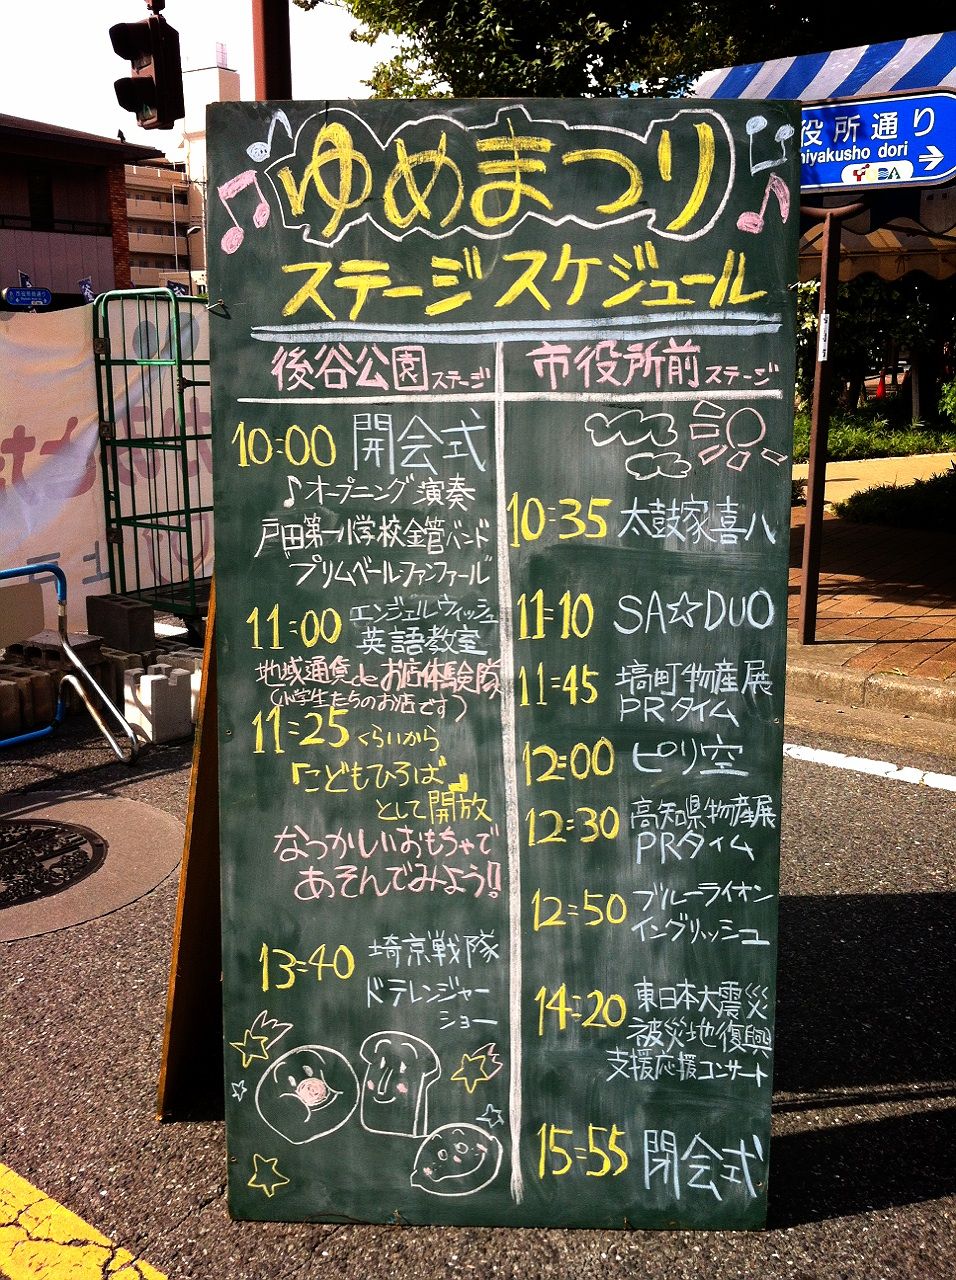 ゆめまつり
ステージスケジュール
後谷公園ステージ
10:00 開会式
♪オープニング演奏
戸田第一小学校金管バンド
プリムベールファンファール
11:00 エンジェルウィッシュ
英語教室
地域通貨deお店体験隊
(小学生たちのお店です)
11:25くらいから
「こどもひろば」
として開放
なつかしいおもちゃで
あそんでみよう!!
13:40 埼京戦隊
ドテレンジャー
ショー
市役所前ステージ
10:35 太鼓家喜八
11:10 SA☆DUO
11:45 塙町物産展
PRタイム
12:00 ピリ空
12:30 高知県物産展
PRタイム
12:50 ブルーライオン
イングリッシュ
14:20 東日本大震災
被災地復興
支援応援コンサート
15:55 閉会式
役所通り
hiyakusho dori